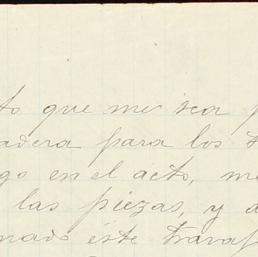 to que me sea p
adera para los t
go en el acto, me
las piezas, y a
nado éste traba